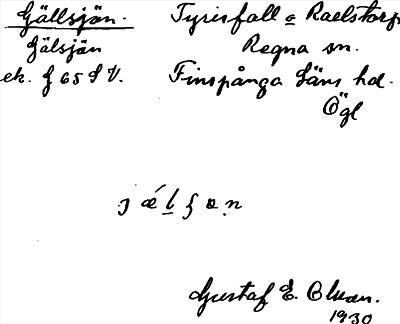 Gällsjön.
Gälsjän
ek. f 65 S V.
Tyrisfall o Raelstorp
Regna sn.
Finspånga läns hd.
Ögl
Gustaf E. Olsson.
1930